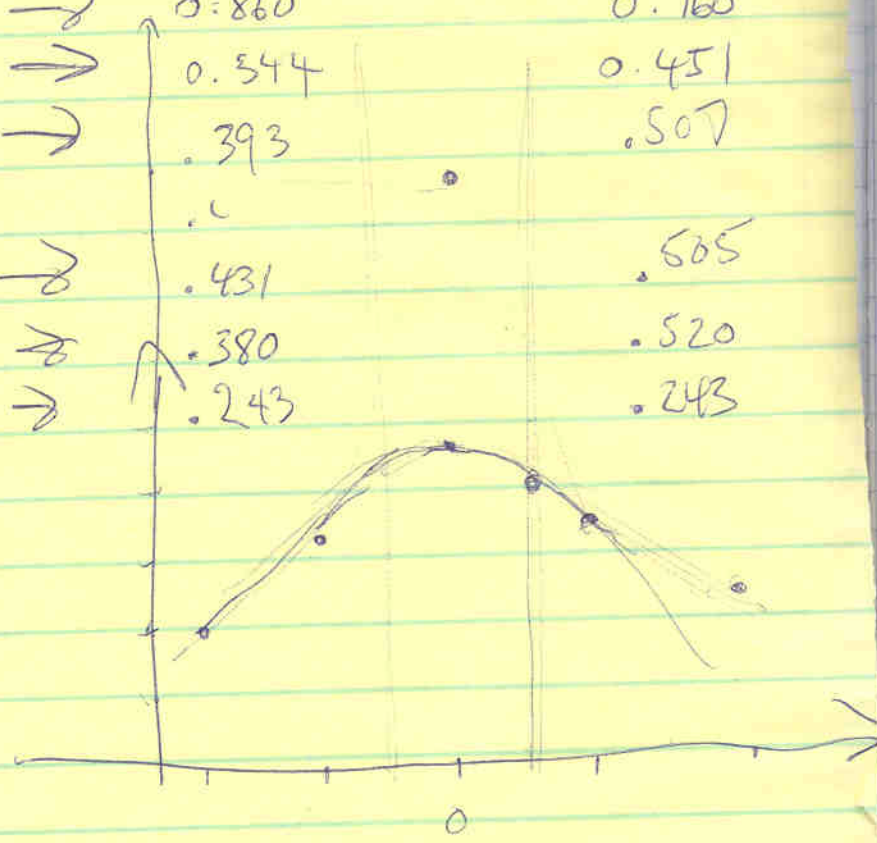 → 0.860 0.760
→ 0.344 0.451
→ .393 .507
→ .431 .505
→ .380 .520
→ .243 .243
0